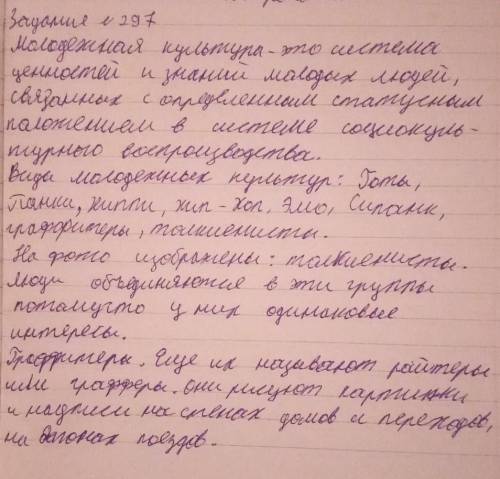 Задания №297
Молодежная культура-это система
ценностей и знаний молодых людей,
связанных с определенным статусным
положением в системе социокуль-
турного воспроизводства.
Виды молодежных культур: Готы,
Панки, хиппи, хип-хоп, Эмо, Сипанк,
граффитеры, толкиенисты.
На фото изображены: толкиенисты.
Люди объединяются в эти группы
потомучто у них одинаковые
интересы.
Граффитеры. Еще их называют райтеры
или графферы. они рисуют картинки
и надписи на стенах домов и переходов,
на вагонах поездов.